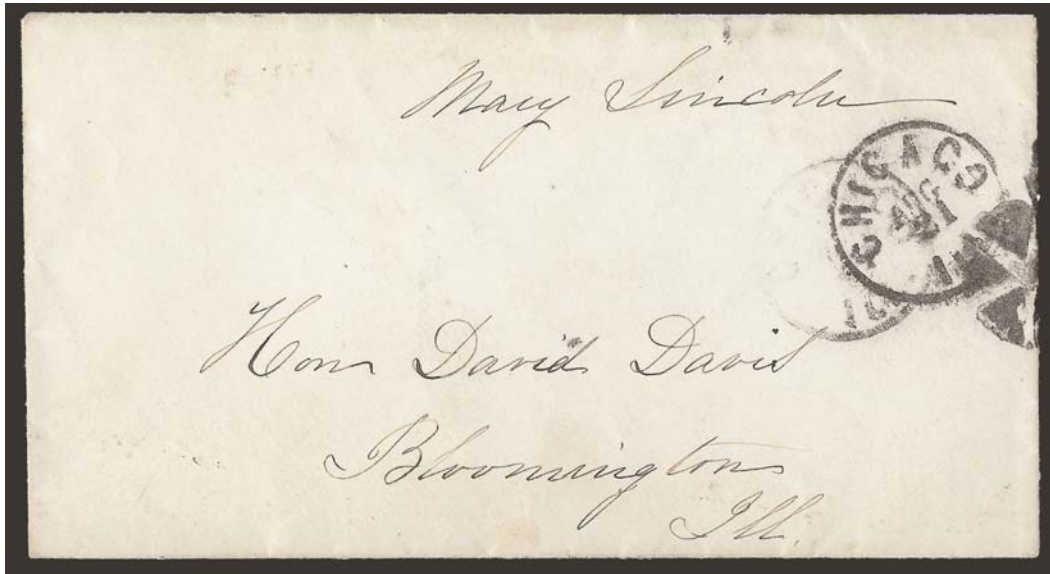 Mary Lincoln
CHICAGO
AUG
21
ILL
Hon David Davis
Bloomington
Ill.